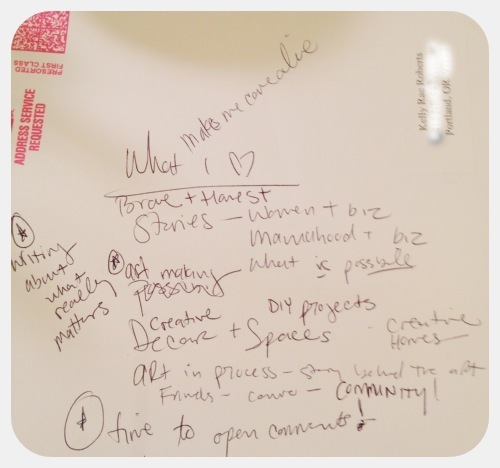 PRESORTED
FIRST CLASS
ADDRESS SERVICE
REQUESTED
Kelly Rae Roberts
Portland, OR
makes me come alive
What I ♡
Brave + Honest
Stories - Women + biz
Mamahood + biz
What is possible
★ writing
about
what
really
matters
★ art making
possibility
DIY projects
Creative
Decour + Spaces - Creative
Homes
art in process - story behind the art
Friends - COMMUNITY!
★ time to open comments!